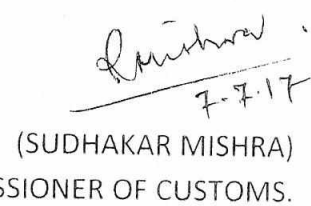 7.7.17
(SUDHAKAR MISHRA)
SSIONER OF CUSTOMS.